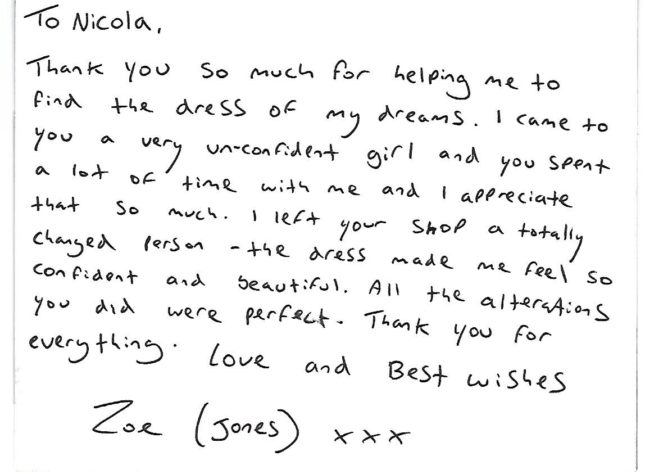 To Nicola,
Thank you so much for helping me to
find the dress of my dreams. I came to
you a very un-confident girl and you spent
a lot of time with me and I appreciate
that so much. I left your shop a totally
changed person - the dress made me feel so
confident and beautiful. All the alterations
you did were perfect. Thank you for
everything. Love and Best wishes
Zoe (Jones) xxx